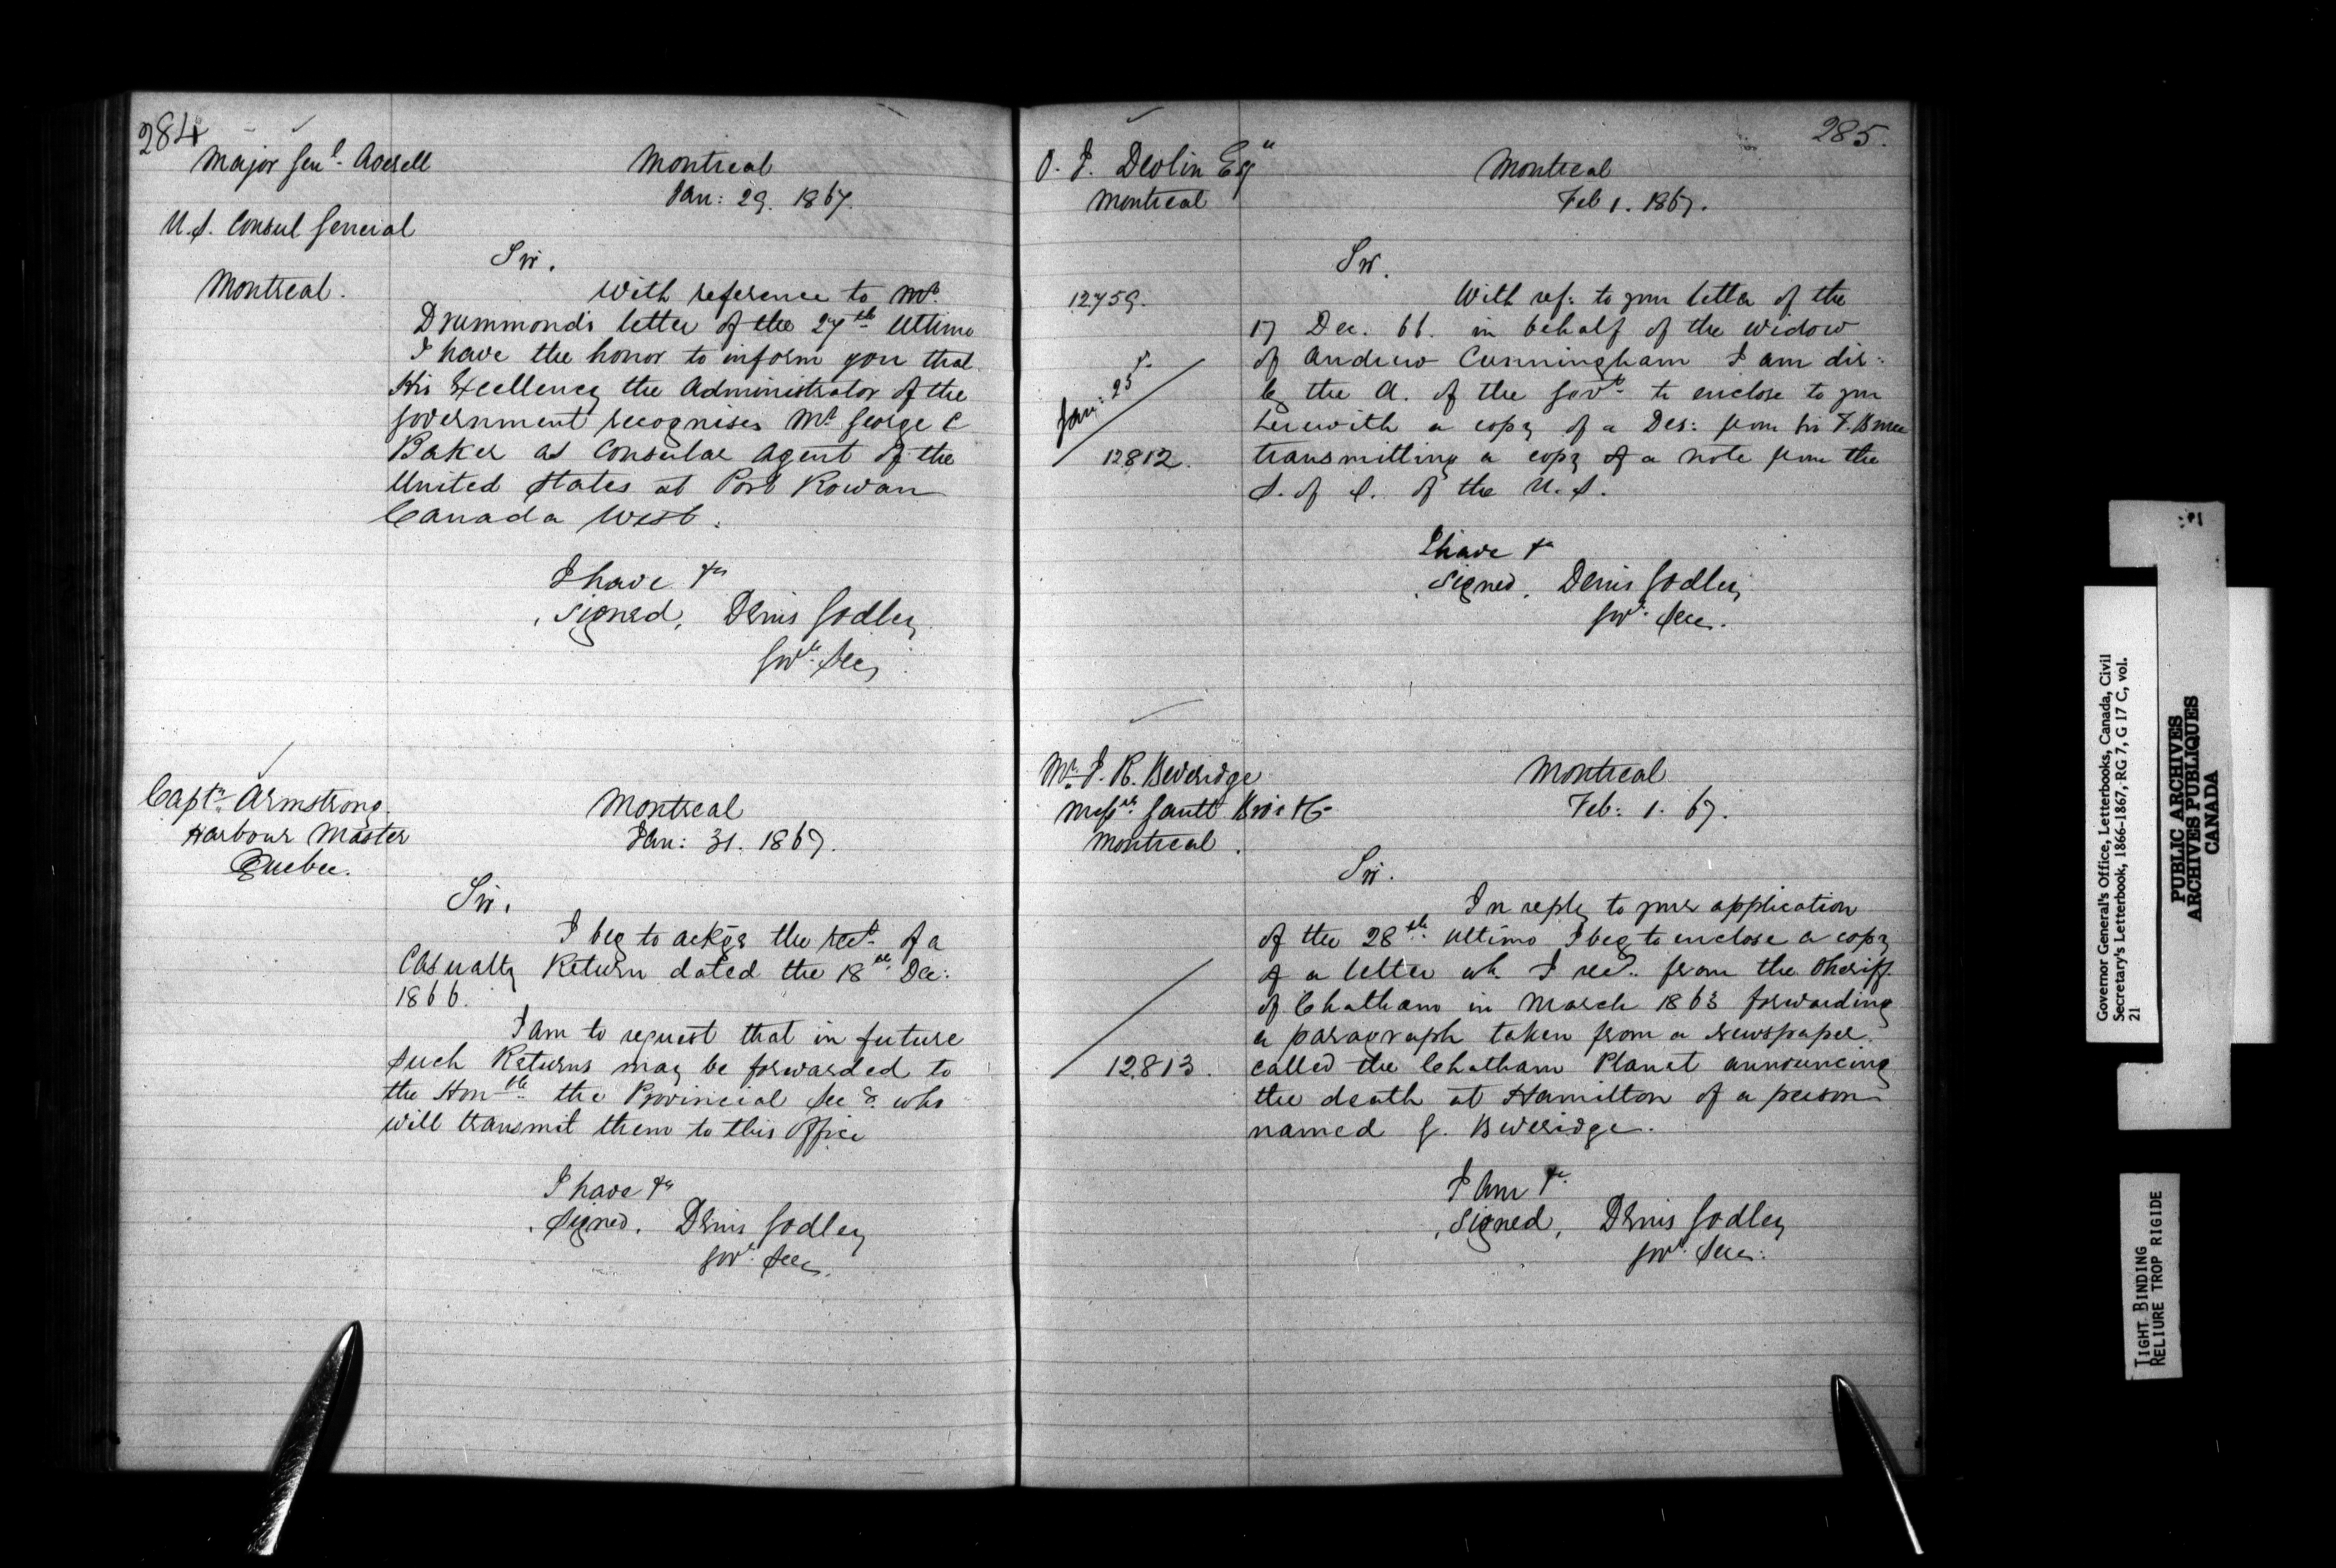 284
Major Genl. Averell
U.S. Consul General
Montreal.
Montreal
Jan: 29. 1867.
Sir.
With reference to Mr.
Drummond's letter of the 27th Ultimo
I have the honor to inform you that
His Excellency the Administrator of the
Government recognises Mr. George C
Baker as Consular Agent of the
United States at Port Rowan
Canada West.
I have &c
signed, Denis Godley
Govrs. Secy
Captn. Armstrong.
Harbour Master
Quebec.
Montreal
Jan: 31. 1867.
Sir.
I beg to ackge the rect. of a
Casualty Return dated the 18th Dec:
1866.
I am to request that in future
such Returns may be forwarded to
the Honble the Provincial Secy. who
will transmit them to this Office
I have &c
signed. Denis Godley
Govr. Secy.
285.
O. J. Devlin Esqre
Montreal
Montreal
Feb 1. 1867.
Sir.
12759.
Jan: 23
12812.
With ref: to your letter of the
17 Dec. 66. in behalf of the widow
of Andrew Cunningham I am dir:
by the A. of the Govt. to enclose to you
herewith a copy of a Des: from Sir F. Bruce
transmitting a copy of a note from the
S. of S. of the U.S.
I have &c
signed. Denis Godley
Govr. Secy.
Mr. J. R. Beveridge
Messrs. Gault Bros & Co
Montreal.
Montreal
Feb: 1. 67.
Sir.
12813.
In reply to your application
of the 28th Ultimo I beg to enclose a copy
of a letter wh. I recd. from the Sheriff
of Chatham in March 1863 forwarding
a paragraph taken from a newspaper
called the Chatham Planet announcing
the death at Hamilton of a person
named G. Beveridge.
I am &c.
signed, Denis Godley
Govr. Secy:
Governor General's Office, Letterbooks, Canada, Civil
Secretary's Letterbook, 1866-1867, RG 7, G 17 C, vol.
21
PUBLIC ARCHIVES
ARCHIVES PUBLIQUES
CANADA
TIGHT BINDING
RELIURE TROP RIGIDE